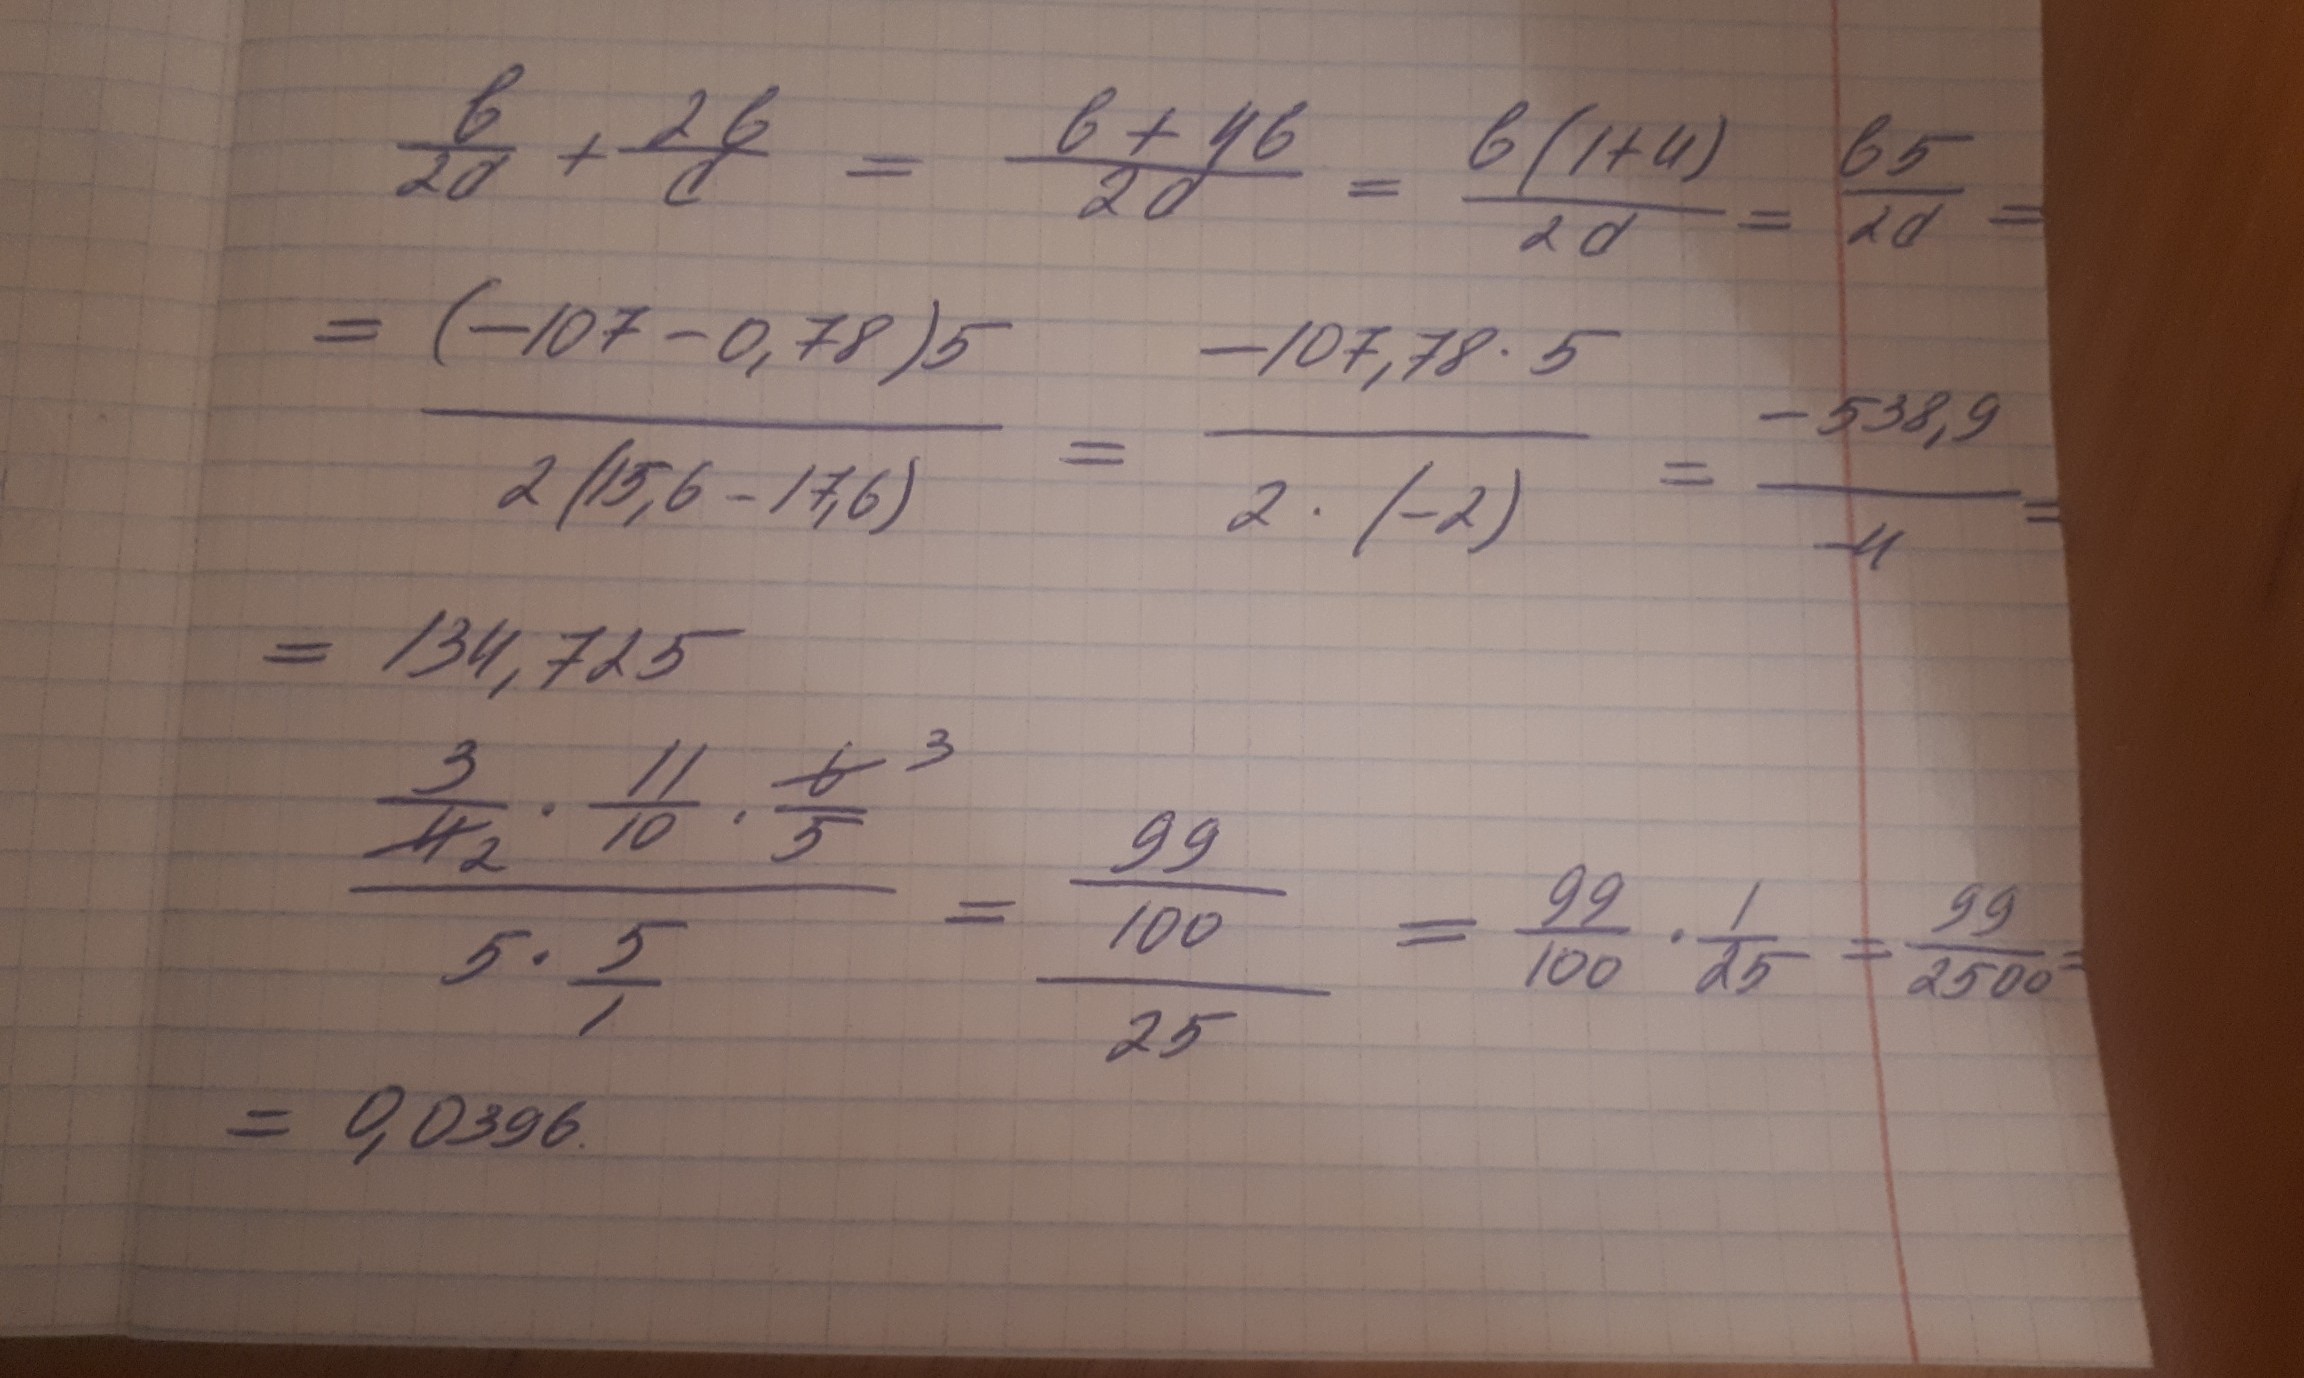 b/2d + 2b/d = (b + 4b)/2d = b(1+4)/2d = b5/2d =
= (-107 - 0,78)5 / 2(15,6 - 17,6) = -107,78 · 5 / 2 · (-2) = -538,9 / -4 =
= 134,725
3/4 2 · 11/10 · 6/5 3 / 5 · 5/1 = 99/100 / 25 = 99/100 · 1/25 = 99/2500 =
= 0,0396.